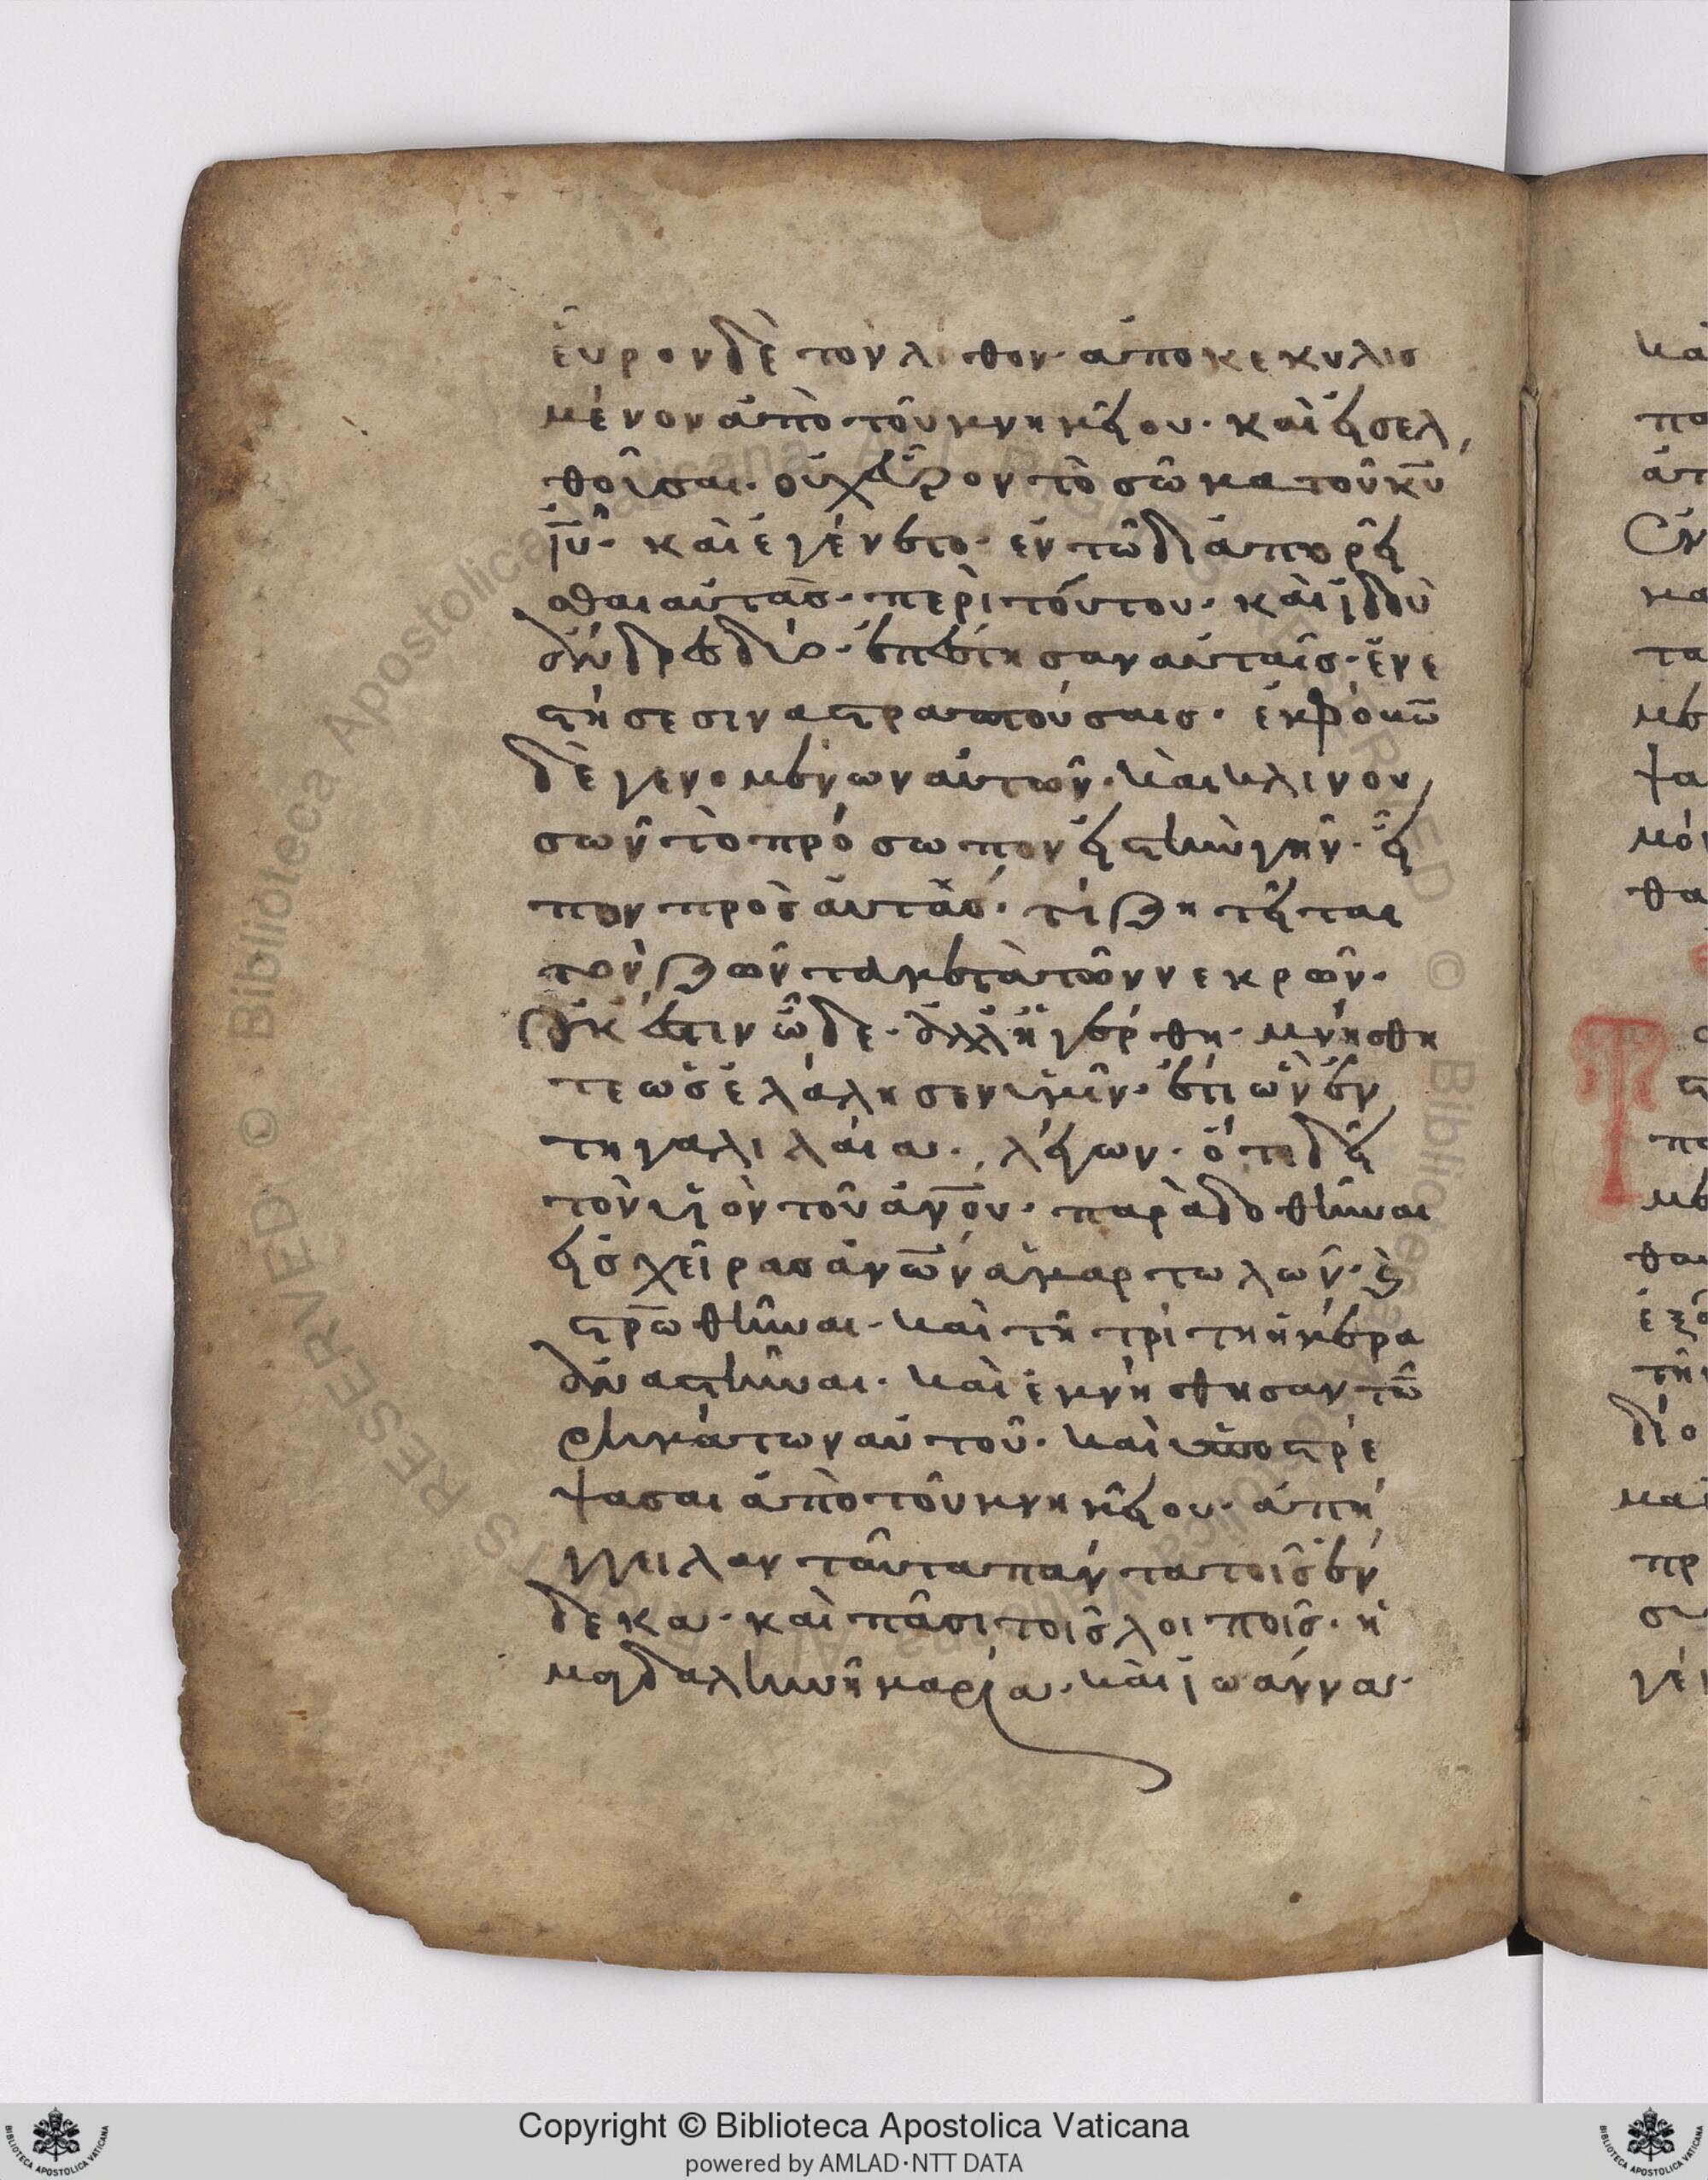 εὗρον δὲ τὸν λίθον· ἀποκεκυλισ
μένον ἀπὸ τοῦ μνημείου· καὶ εἰσελ
θοῦσαι· οὐχ εὗρον τὸ σῶμα τοῦ κ̅υ̅
ι̅υ̅· καὶ ἐγένετο· ἐν τῶ διαπορεῖ
σθαι αὐτὰσ· περὶ τούτου· καὶ ἰδοὺ
ἄνδρεσ δύο· ἐπέστησαν αὐταῖσ· ἐνε
στήσεσιν αστραπτούσαισ· ἐμφόβω̅
δὲ γενομένων αὐτῶν· καὶ κλινου
σῶν τὸ πρόσωπον εἰσ τὴν γῆν· εἶ
πον πρὸσ αὐτάσ· τί ζητεῖται
τὸν ζῶντα μετὰ τῶν νεκρῶν·
Οὐκ έστιν ὧδε· ἀλλ' ἠγέρθη· μνήσθη
τε ὡσ ἐλάλησεν ὑμῖν· ἔτι ὢν ἐν
τη γαλιλαία· λέγων· ὅτι δεῖ
τὸν υἱὸν τοῦ ἀν̅ο̅υ· παραδοθῆναι
εἰσ χεῖρασ ἀν̅ω̅ν ἁμαρτωλῶν· ϗ
στρ̅ωθῆναι· καὶ τῆ τρίτη ἡμέρα
ἀναστῆναι· καὶ ἐμνήσθησαν τῶ̅
ρημάτων αὐτοῦ· καὶ ὑποστρέ
ψασαι ἀπὸ τοῦ μνημείου· ἀπή
γγειλαν ταῦτα πάντα τοῖσ ἕν
δεκα· καὶ πᾶσι τοῖσ λοιποῖσ· ἡ
μαγδαληνὴ μαρία· καὶ ἰωάννα·
κα
πο
ἀπ
Ἐν
μα
τα
με
ψα
μόν
θα
Τ
πο
με
θαι
ἐξ
τῆν
δίο
μαὶ
πρ
συ
γέν
Copyright © Biblioteca Apostolica Vaticana
powered by AMLAD·NTT DATA